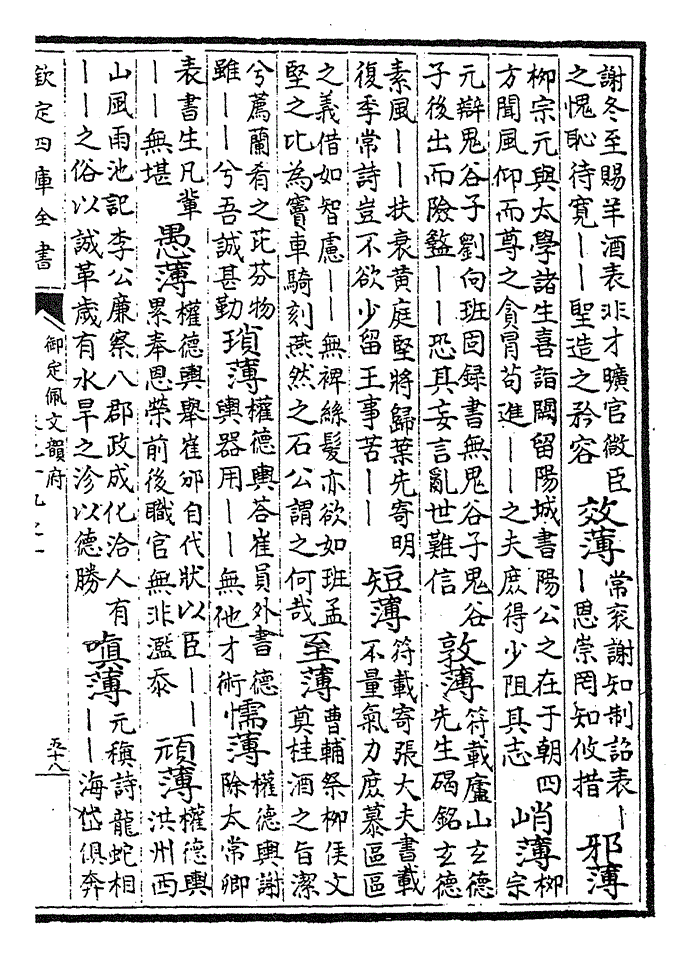 謝冬至賜羊酒表非才曠官微臣
之愧恥待寛丨丨聖造之矜容
效薄
常衮謝知制誥表丨
丨恩崇罔知攸措
邪薄
栁宗元與太學諸生喜詣闕留陽城書陽公之在于朝四
方聞風仰而尊之貪冒苟進丨丨之夫庶得少阻其志
峭薄
栁
宗
元辯鬼谷子劉向班固録書無鬼谷子鬼谷
子後出而險盭丨丨恐其妄言亂世難信
敦薄
符載廬山玄德
先生碣銘玄德
素風丨丨扶衰黄庭堅將歸葉先寄明
復季常詩豈不欲少留王事苦丨丨
短薄
符載寄張大夫書載
不量氣力庶慕區區
之義借如智慮丨丨無裨絲髮亦欲如班孟
堅之比為竇車騎刻燕然之石公謂之何哉
至薄
曹輔祭栁侯文
奠桂酒之旨潔
兮薦蘭肴之苾芬物
雖丨丨兮吾誠甚勤
瑣薄
權德輿荅崔員外書德
輿器用丨丨無他才術
懦薄
權德輿謝
除太常卿
表書生凡軰
丨丨無堪
愚薄
權德輿舉崔邠自代狀以臣丨丨
累奉恩榮前後職官無非濫忝
頑薄
權德輿
洪州西
山風雨池記李公廉察八郡政成化洽人有
丨丨之俗以誠革歲有水旱之沴以德勝
嗔薄
元稹詩龍蛇相
丨丨海岱俱奔
欽定四庫全書
御定佩文韻府
五十八